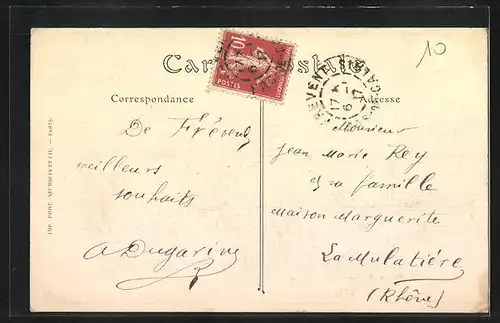 10
Carte Postale
Correspondance
Adresse
De Frévent
meilleurs
souhaits
A Dugarin
Monsieur
Jean Marie Rey
et sa famille
maison Marguerite
La Mulatière
(Rhône)
10
POSTES
FREVENT
PAS-DE-CALAIS
17 -1
6 17
IMP. PHOT. NEURDEIN ET CIE. — PARIS.